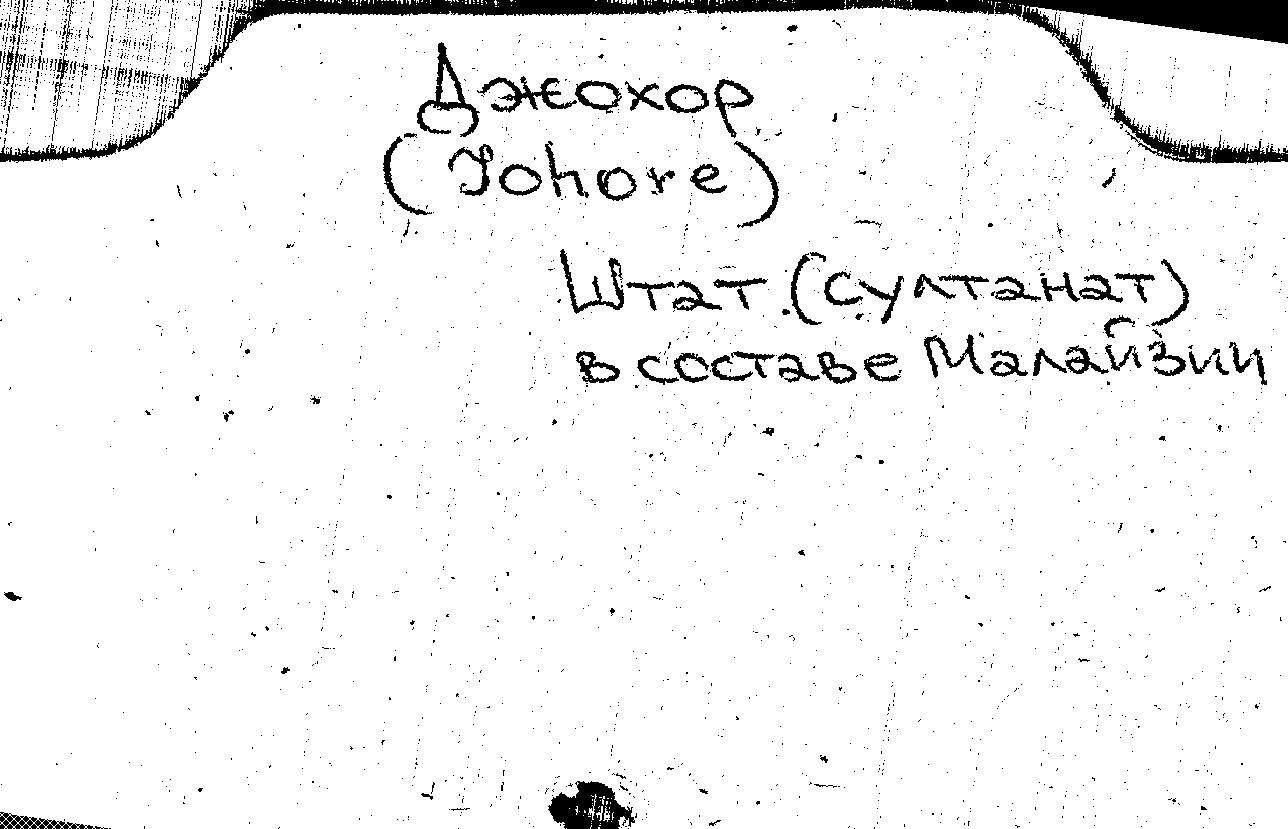 Джохор
(Johore)
Штат (султанат)
в составе Малайзии